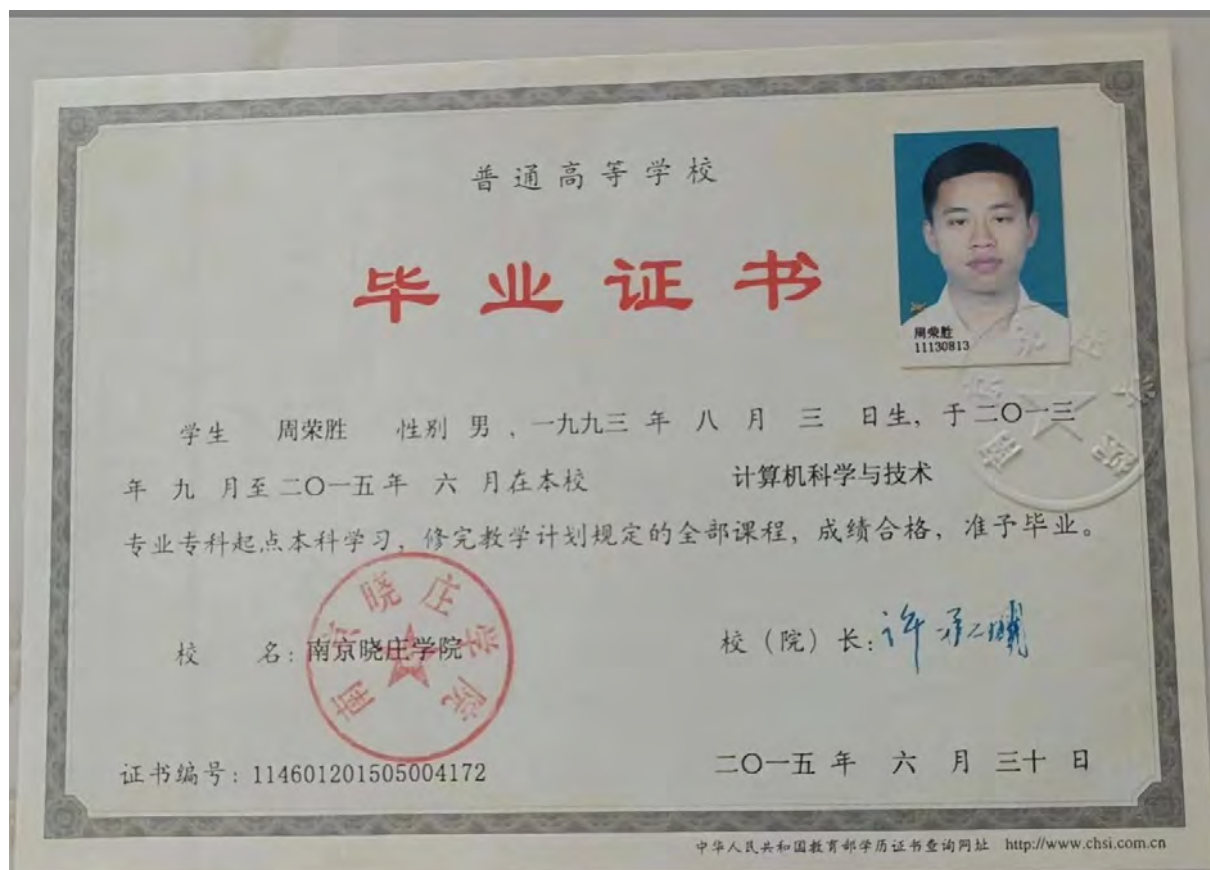 普通高等学校
毕业证书
周荣胜
11130813
学生 周荣胜 性别 男 ，一九九三 年 八 月 三 日生，于二〇一三
年 九 月至二〇一五年 六 月在本校 计算机科学与技术
专业专科起点本科学习，修完教学计划规定的全部课程，成绩合格，准予毕业。
南京晓庄学院
校 名：南京晓庄学院
校（院）长：
证书编号：114601201505004172
二〇一五 年 六 月 三十 日
中华人民共和国教育部学历证书查询网址 http://www.chsi.com.cn